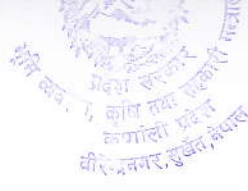 प्रदेश सरकार
भूमि व्यव. , कृषि तथा सहकारी मन्त्रा
कर्णाली प्रदेश
वीरेन्द्रनगर, सुर्खेत, नेपाल